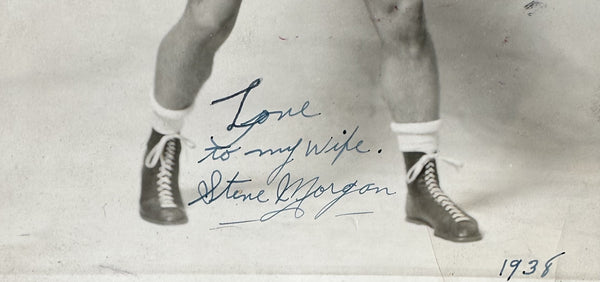 Love
to my Wife.
Steve Morgan
1938